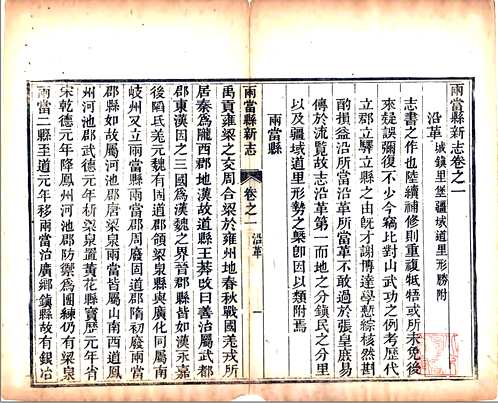 兩當縣新志卷之一
沿革 城鎮里堡疆域道里形勝附
志書之作也陸續補修則重複牴牾或所未免後
來疑誤彌復不少今竊比對山武功之例考歷代
立郡立驛立縣之由旣才謝博達學慙綜核然斟
酌損益沿所當沿革所當革不敢過於張皇庶易
傳於流覽故志沿革第一而地之分鎮民之分里
以及疆域道里形勢之槩卽因以類附焉
兩當縣
兩當縣新志 卷之一 沿革 一
禹貢雍梁之交周合梁於雍州地春秋戰國羌戎所
居秦為隴西郡地漢故道縣王莽改曰善治屬武都
郡東漢因之三國為漢魏之界晉郡縣皆如漢永嘉
後陷氐羌元魏有固道郡領梁泉縣與廣化同屬南
岐州又立兩當縣郡周廢固道郡隋初廢兩當
郡縣如故屬河池郡唐梁泉兩當皆屬山南西道鳳
州河池郡武德元年析梁泉置黃花縣寶歷元年省
宋乾德元年降鳳州河池郡防禦為團練仍有梁泉
兩當二縣至道元年移兩當治廣鄉鎮縣故有銀冶